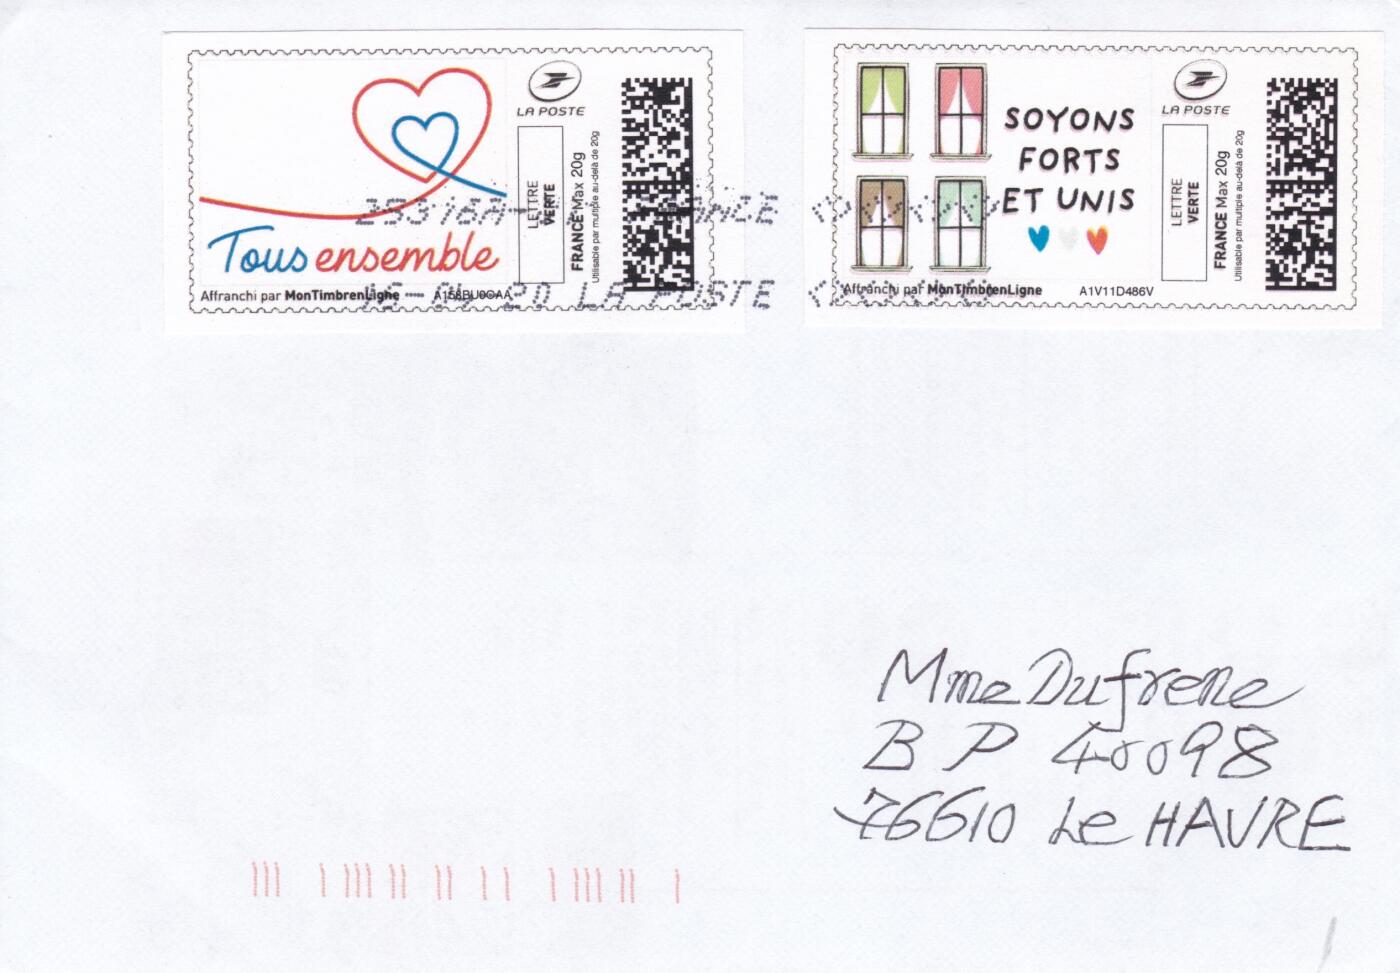 LA POSTE
LETTRE
VERTE
FRANCE Max 20g
Utilisable par multiple au-delà de 20g
Tous ensemble
Affranchi par MonTimbrenLigne
LA POSTE
SOYONS
FORTS
ET UNIS
LETTRE
VERTE
FRANCE Max 20g
Utilisable par multiple au-delà de 20g
Affranchi par MonTimbrenLigne A1V11D486V
LA POSTE
Mme Dufrene
BP 40098
76610 Le HAVRE